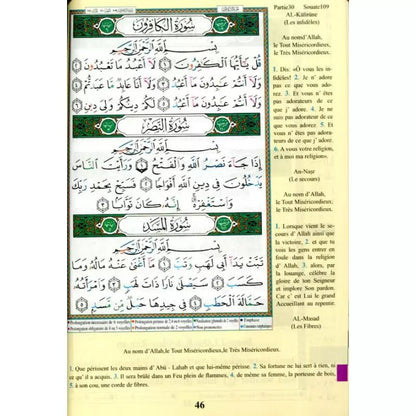 Partie30 Sourate109
AL-Kâfirûne
(Les infidèles)
Au nomd'Allah,
le Tout Miséricordieux,
le Très Miséricordieux.
1. Dis: «Ô vous les in-
fidèles! 2. Je n' adore
pas ce que vous ado-
rez. 3. Et vous n' êtes
pas adorateurs de ce
que j' adore. 4. Je ne
suis pas adorateur de ce
que vous adorez. 5. Et
vous n' êtes pas adora-
teurs de ce que j' adore.
6. A vous votre religion,
et à moi ma religion».
An-Naṣr
(Le secours)
Au nom d'Allah,
le Tout Miséricordieux,
le Très Miséricordieux.
1. Lorsque vient le se-
cours d' Allah ainsi que
la victoire, 2. et que tu
vois les gens entrer en
foule dans la religion
d' Allah, 3. alors, par
la louange, célèbre la
gloire de ton Seigneur
et implore Son pardon.
Car c' est Lui le grand
Accueillant au repentir.
AL-Masad
(Les Fibres)
سُورَةُ الكَافِرُونَ
بِسْمِ اللَّهِ الرَّحْمَٰنِ الرَّحِيمِ
قُلْ يَٰٓأَيُّهَا ٱلْكَٰفِرُونَ ١ لَآ أَعْبُدُ مَا تَعْبُدُونَ
٢ وَلَآ أَنتُمْ عَٰبِدُونَ مَآ أَعْبُدُ ٣ وَلَآ أَنَا۠ عَابِدٌ مَّا عَبَدتُّمْ
٤ وَلَآ أَنتُمْ عَٰبِدُونَ مَآ أَعْبُدُ ٥ لَكُمْ دِينُكُمْ وَلِىَ دِينِ ٦
سُورَةُ النَّصْرِ
بِسْمِ اللَّهِ الرَّحْمَٰنِ الرَّحِيمِ
إِذَا جَآءَ نَصْرُ ٱللَّهِ وَٱلْفَتْحُ ١ وَرَأَيْتَ ٱلنَّاسَ
يَدْخُلُونَ فِى دِينِ ٱللَّهِ أَفْوَاجًا ٢ فَسَبِّحْ بِحَمْدِ رَبِّكَ
وَٱسْتَغْفِرْهُ إِنَّهُۥ كَانَ تَوَّابًۢا ٣
سُورَةُ المَسَد
بِسْمِ اللَّهِ الرَّحْمَٰنِ الرَّحِيمِ
تَبَّتْ يَدَآ أَبِى لَهَبٍ وَتَبَّ ١ مَآ أَغْنَىٰ عَنْهُ مَالُهُۥ وَمَا
كَسَبَ ٢ سَيَصْلَىٰ نَارًا ذَاتَ لَهَبٍ ٣ وَٱمْرَأَتُهُۥ
حَمَّالَةَ ٱلْحَطَبِ ٤ فِى جِيدِهَا حَبْلٌ مِّن مَّسَدٍۭ ٥
Au nom d'Allah,le Tout Miséricordieux,le Très Miséricordieux.
1. Que périssent les deux mains d' Abû - Lahab et que lui-même périsse. 2. Sa fortune ne lui sert à rien, ni
ce qu' il a acquis. 3. Il sera brûlé dans un Feu plein de flammes, 4. de même sa femme, la porteuse de bois,
5. à son cou, une corde de fibres.
46